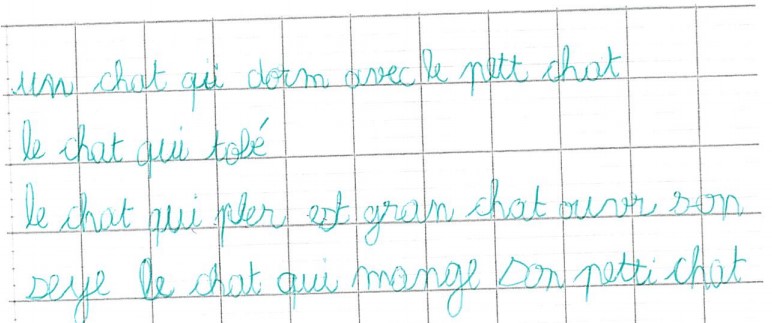 un chat qui dorm avec le petit chat
le chat qui tobé
le chat qui pler est gran chat ouvr son
seye le chat qui mange son petti chat